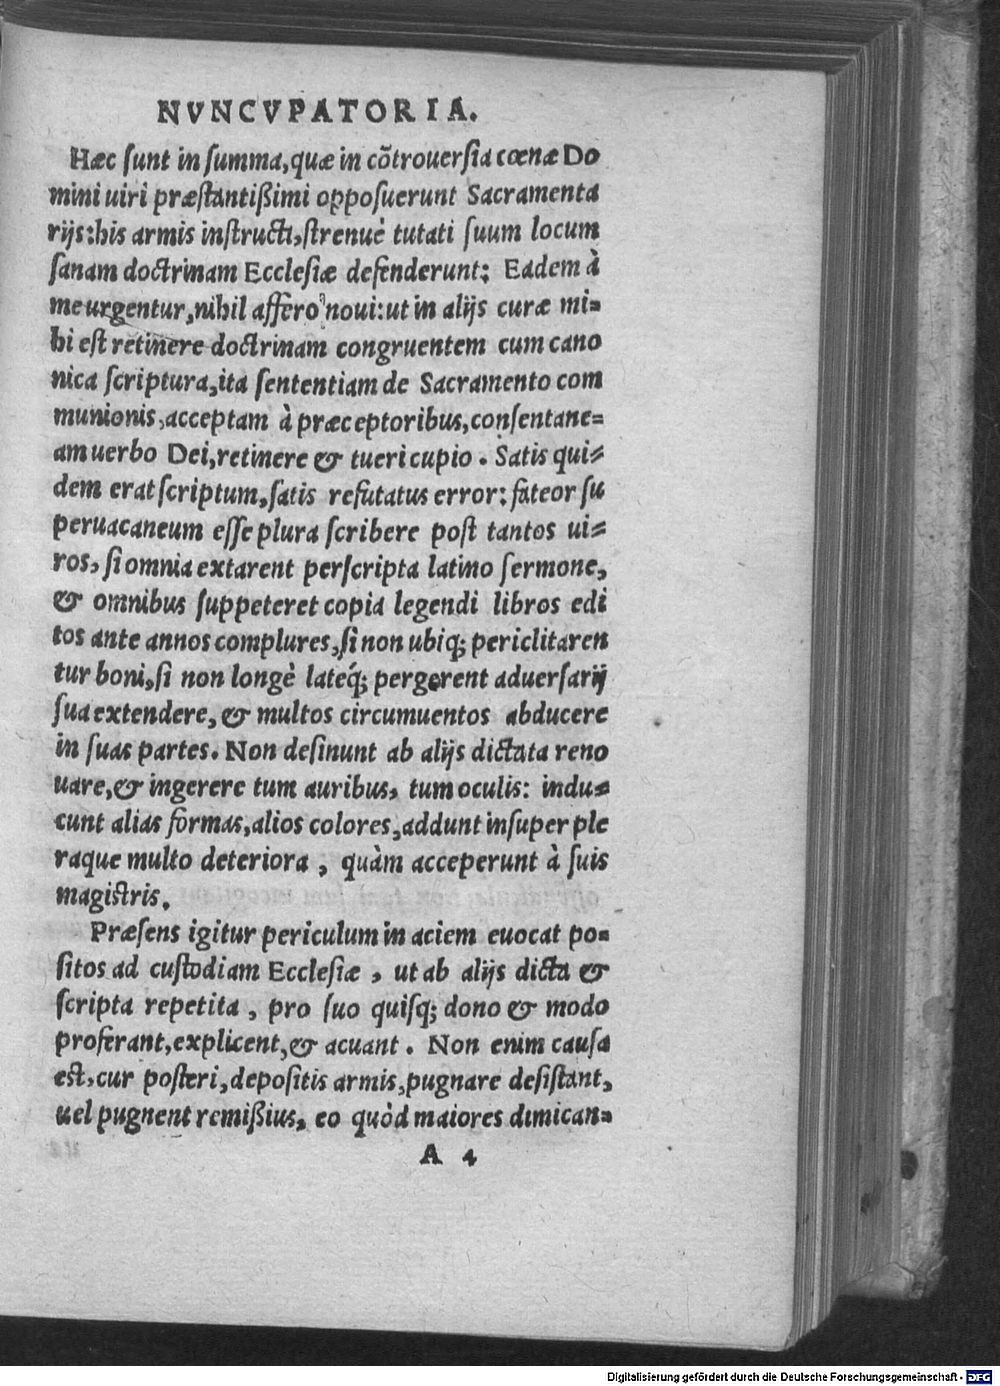 NVNCVPATORIA.
Hæc ſunt in ſumma, quæ in cõtrouerſia cœnæ Do
mini uiri præſtantißimi oppoſuerunt Sacramenta
rijs: his armis inſtructi, ſtrenuè tutati ſuum locum
ſanam doctrinam Eccleſiæ defenderunt: Eadem à
me urgentur, nihil affero noui: ut in alijs curæ mi=
hi eſt retinere doctrinam congruentem cum cano
nica ſcriptura, ita ſententiam de Sacramento com
munionis, acceptam à præceptoribus, conſentane=
am uerbo Dei, retinere & tueri cupio. Satis qui=
dem erat ſcriptum, ſatis refutatus error: fateor ſu
peruacaneum eſſe plura ſcribere poſt tantos ui=
ros, ſi omnia extarent perſcripta latino ſermone,
& omnibus ſuppeteret copia legendi libros edi
tos ante annos complures, ſi non ubiq; periclitaren
tur boni, ſi non longè latéq; pergerent aduerſarij
ſua extendere, & multos circumuentos abducere
in ſuas partes. Non deſinunt ab alijs dictata reno
uare, & ingerere tum auribus, tum oculis: indu=
cunt alias formas, alios colores, addunt inſuper ple
raque multo deteriora, quàm acceperunt à ſuis
magiſtris.
Præſens igitur periculum in aciem euocat po=
ſitos ad cuſtodiam Eccleſiæ, ut ab alijs dicta &
ſcripta repetita, pro ſuo quiſq; dono & modo
proferant, explicent, & acuant. Non enim cauſa
est, cur poſteri, depoſitis armis, pugnare deſiſtant,
uel pugnent remißius, eo quòd maiores dimican=
A 4
Digitalisierung gefördert durch die Deutsche Forschungsgemeinschaft - DFG